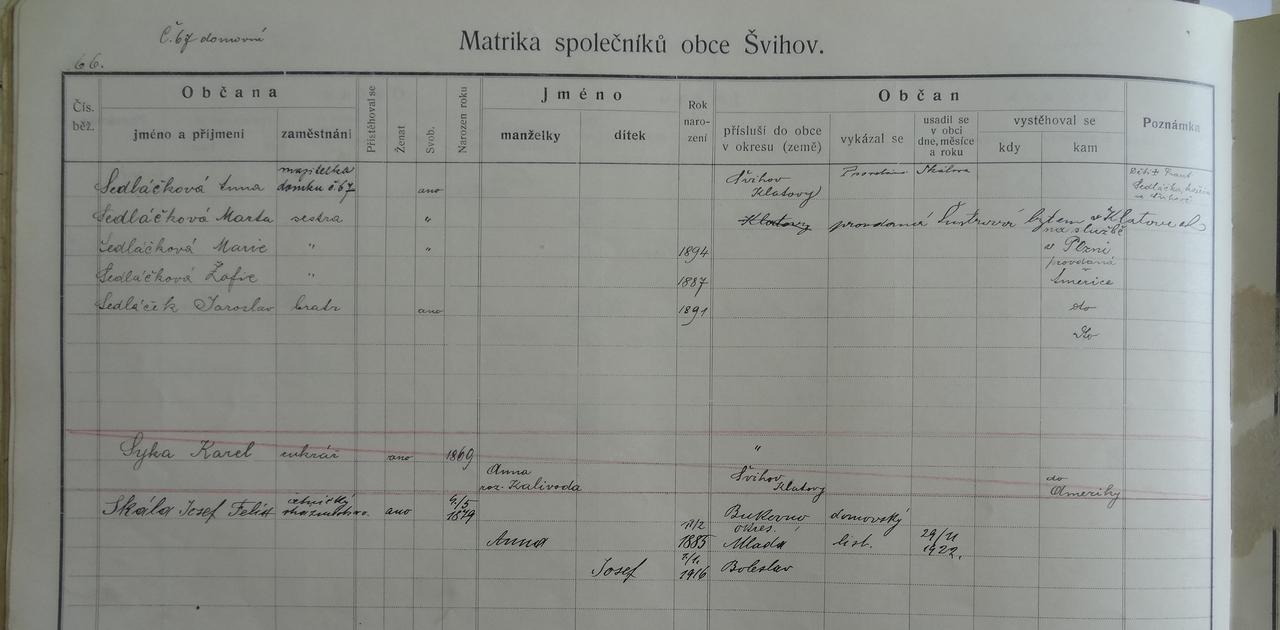 Č. 67 domovní
66.
Matrika společníků obce Švihov.
Čís. běž.
Občana
jméno a příjmení
zaměstnání
Přistěhoval se
Ženat
Svob.
Narozen roku
Jméno
manželky
dítek
Rok naro- zení
Občan
přísluší do obce v okresu (země)
vykázal se
usadil se v obci dne, měsíce a roku
vystěhoval se
kdy
kam
Poznámka
Sedláčková Anna majitelka domku č 67 ano Švihov Klatovy Provdána Skálova
Sedláčková Marta sestra " Klatovy provdaná bytem v
Sedláčková Marie " " 1894 na službě v Plzni
Sedláčková Žofie " 1887 provdaná Americe
Sedláček Jaroslav bratr ano 1891 do
Do
Syka Karel cukrář ano 1869 "
Anna roz. Kalivoda Švihov Klatovy do Ameriky
Skála Josef ano 4/5 1879 Bukovno domovský
Anna 1885 okres. Mladá list. 29/11 1922.
Josef 1916 Boleslav